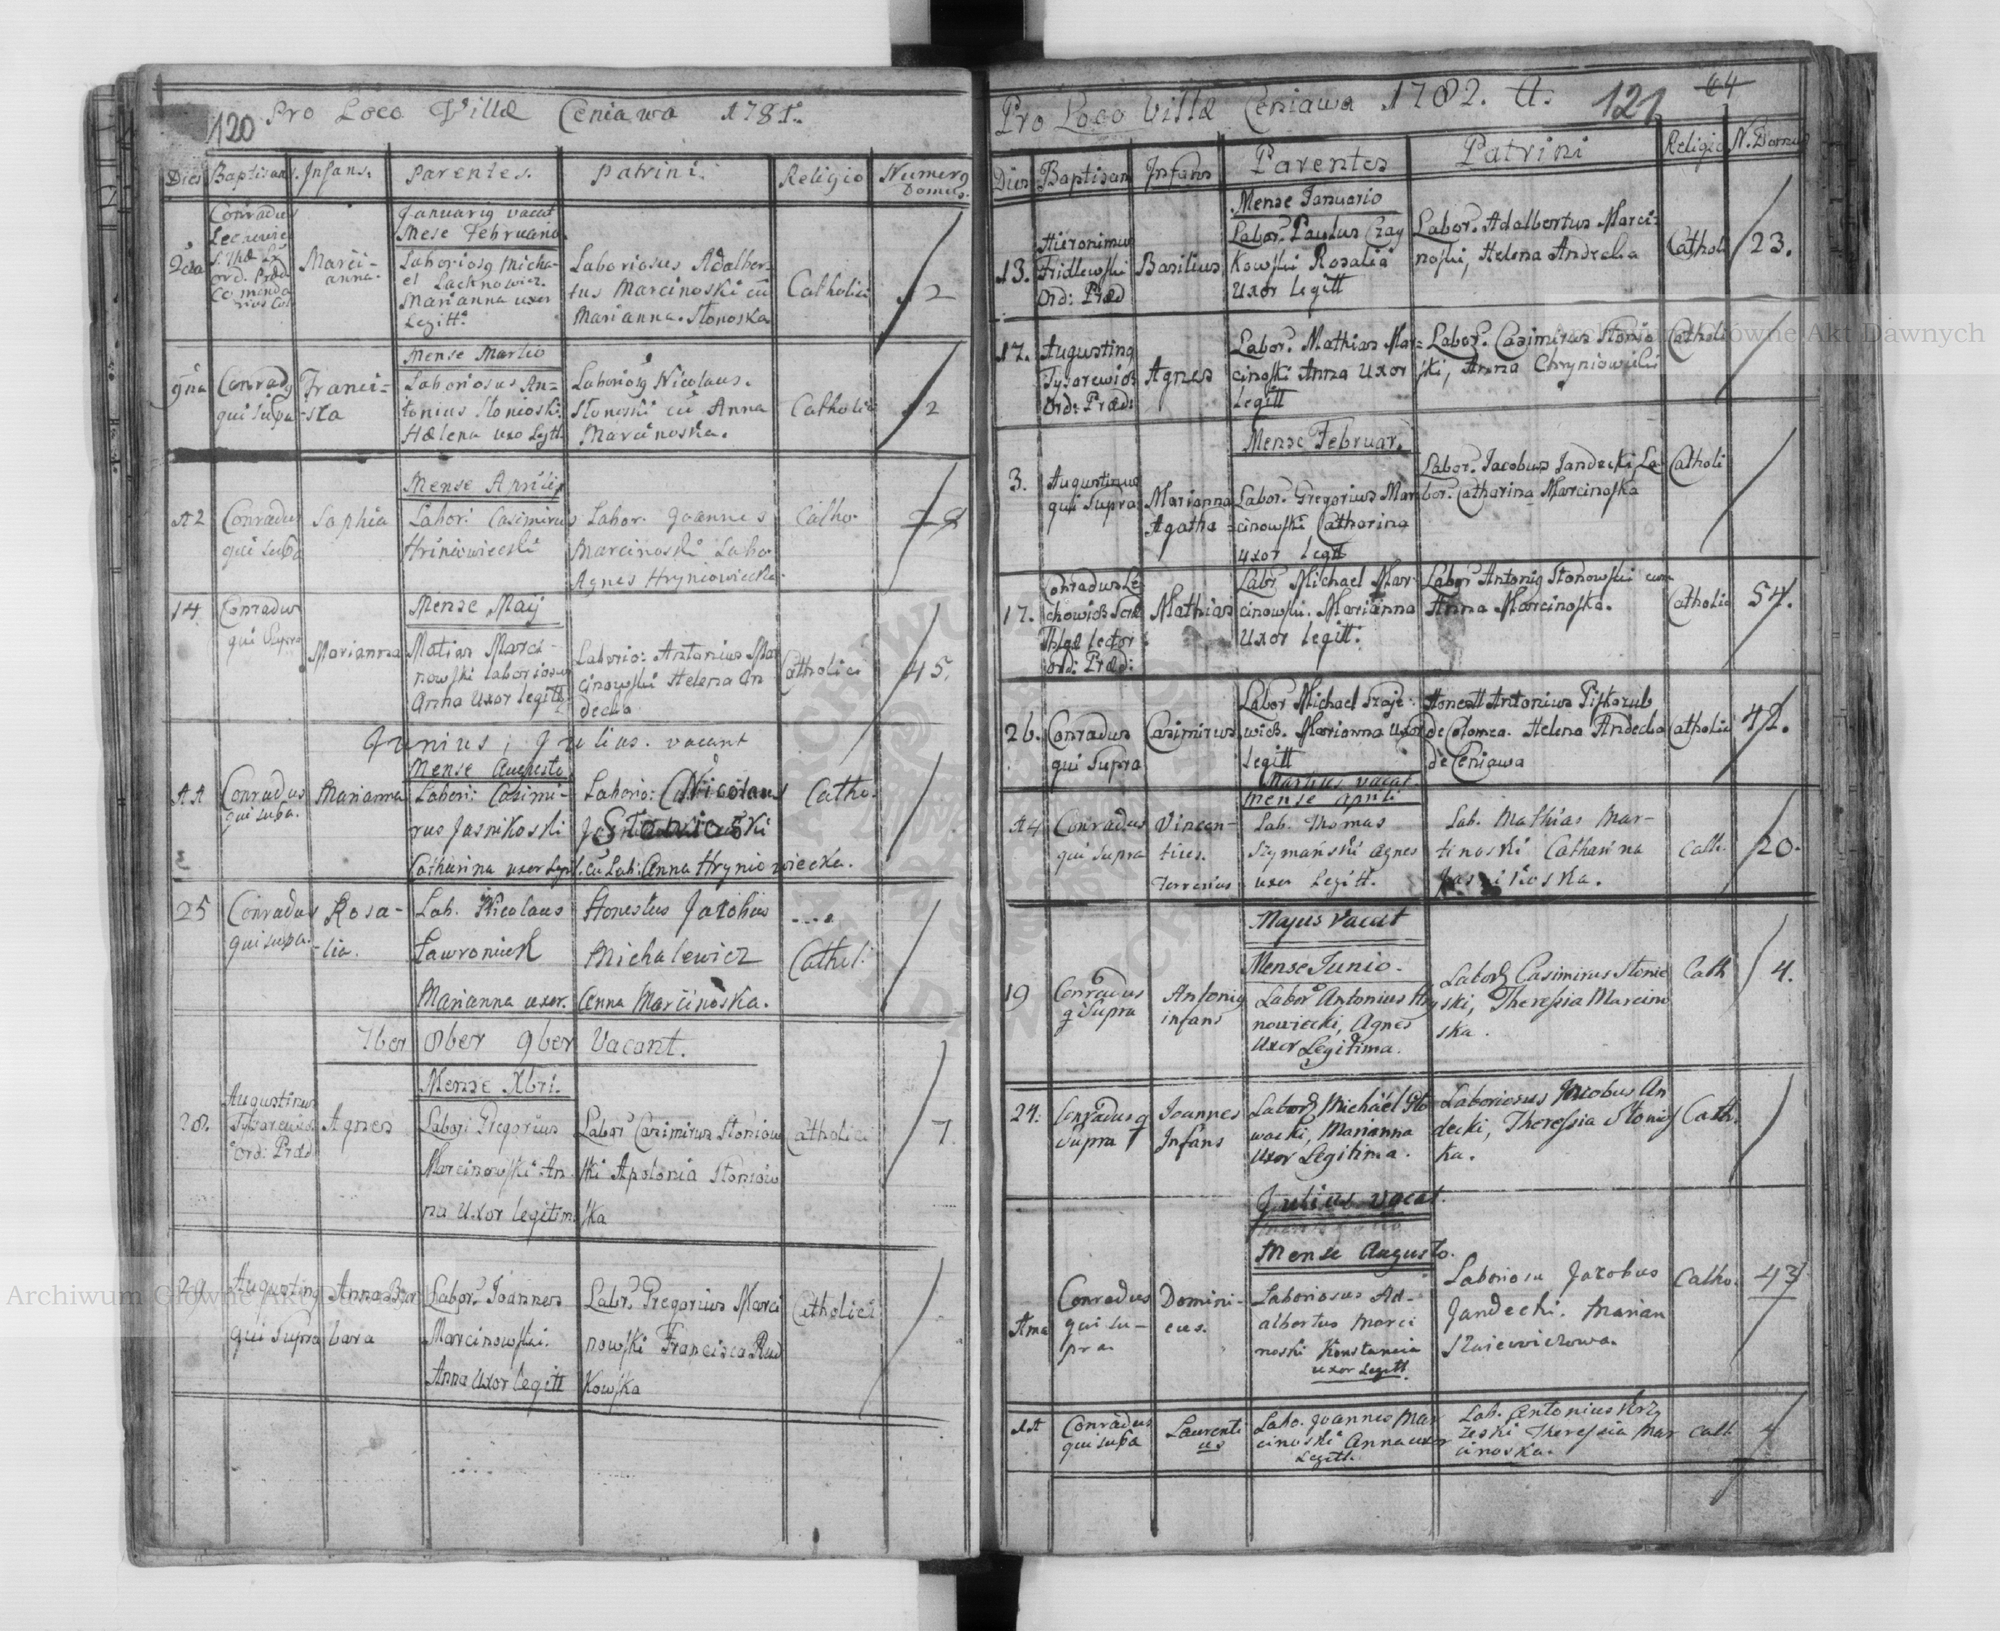 120 Pro Loco Villæ Ceniawa 1781.
Dies Baptisans. Infans. Parentes. Patrini. Religio Numerꝯ Domus.
Januariꝯ vacat
Mese Februario.
2da
Conradus
ord. Præd.
Marci-
anna.
Laboriosꝯ Micha-
el Lacknowicz.
Marianna uxor
Legitt.
Laboriosus Adalber-
tus Marcinoski cũ
Marianna Stonoska
Catholici
12
Mense Martio
9na
Conradꝯ
qui supa
Franci-
ska
Laboriosus An-
tonius Stonioski
Hælena uxo Legtt
Laboriosꝯ Nicolaus.
Stonoski cũ Anna
Marcinoska.
Catholici
12
Mense Aprilis
12
Conradus
qui supa
Sophia
Labor: Casimirus
Hriniowiecski
Labor. Joannes
Marcinoski Labo
Agnes Hryniowiecka.
Catho.
Mense Maij
14.
Conradus
qui supra
Marianna
Matias Marci-
nowski laboriosus
Anna Uxor legitt.
Laborio: Antonius Mar
cinowski Helena An
decka
Catholici
45.
Junius, Julius. vacant
Mense Augusto
11
Conradus
qui supa.
Marianna
Labori: Casimi-
rus Jasnikoski
Catharina uxor Legit.
Laborio: Nicolaus
Stonioski
cũ Lab: Anna Hryniowiecka.
Catho.
25
Conradus
qui supa.
Rosa-
lia.
Lab. Nicolaus
Lawroniuk
Marianna uxor.
Honestus Jacobus
Michalewicz
Anna Marcinoska.
....
Cathol:
7ber 8ber 9ber Vacant.
Mense Xbri.
28.
Augustinus
Tysarewicz
Ord: Præd
Agnes
Labor: Gregorius
Marcinowski An-
na Uxor legitim.
Labor Casimirus Stoniow
ski Apolonia Stoniow
ska
Catholici
7.
29
Augustinꝯ
qui supra
Anna Bar
bara
Labor. Joannes
Marcinowski.
Anna Uxor legitt
Labr. Gregorius Marci
nowski Francisca Rud
kowska
Catholici
Pro Loco Villæ Ceniawa 1782. A. 121. 64
Dies Baptisans Infans Parentes Patrini Religio N. Domus
Mense Januario
13.
Hieronimus
Fridlewski
Ord: Præd
Basilius
Labor. Paulus Czay
kowski Rosalia
Uxor legitt
Labor. Adalbertus Marci-
noski, Helena Andecka
Cathol
23.
17.
Augustinꝯ
Tysarewicz
Ord: Præd:
Agnes
Labor. Mathias Mar-
cinoski Anna Uxor
legitt
Labor. Casimirus Stonio
ski, Anna Chryniowiecki
Catholi
Mense Februar.
3.
Augustinus
qui supra
Marianna
Agatha
Labor. Gregorius Mar
cinowski Catharina
uxor legitt
Labor. Jacobus Jandecki La
bor. Catharina Marcinoska
Catholi
17.
Conradus Le-
chowicz
Lector
ord: Præd:
Mathias
Labr Michael Mar-
cinowski. Marianna
Uxor legitt:
Labor Antonij Stonowski cum
Anna Marcinoska.
Catholic
54.
26.
Conradus
qui supra
Casimirus
Labor Michael Sraje
wicz. Marianna Uxor
legitt
Honestt Antonius Piskozub
de Colomea. Helena Andecka
de Ceniawa
Catholic
42.
Martius vacat.
Mense Aprili
14
Conradus
qui supra
Vincen-
tius.
Ferrerius
Lab. Thomas
Szymański Agnes
uxor Legitt.
Lab. Mathias Mar-
tinoski Catharina
Jasnikoska.
Cath.
20.
Majus vacat
Mense Junio.
19
Conradus
q Supra
Antonij
infans
Labor Antonius Hry
nowiecki, Agnes
Uxor Legitima.
Labor Casimirus Stonio
ski, Theressia Marcino
ska.
Cath
4.
24.
Conradus q
Supra
Joannes
Infans
Labor Michael Slo
wacki, Marianna
Uxor Legitima.
Laboriosus Jacobus An
decki, Theressia Stonios
ka.
Cath.
Julius vacat.
Mense Augusto.
Ama
Conradus
qui su-
pra.
Domini-
cus.
Laboriosus Ad-
albertus Marci
noski Konstancia
uxor Legitt.
Laboriosu Jacobus
Jandecki. Marian
Szaiewiczowa.
Catho.
43
11
Conradus
qui supa
Laurenti
us
Labo. Joannes Mar
cinoski Anna uxor
Legitt.
Lab. Antonius Krzy
żeski Theressia Mar
cinoska.
Cath
Archiwum Główne Akt Dawnych
Archiwum Główne Akt Dawnych